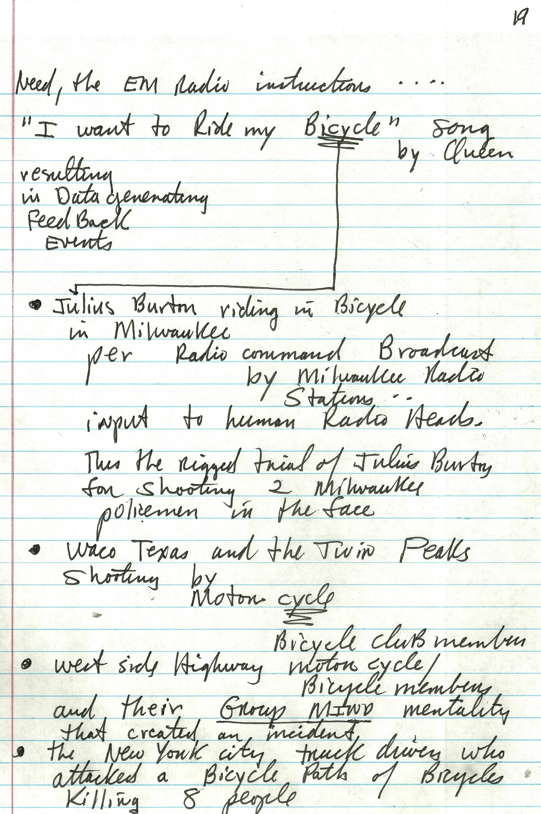 19
Need, the EM Radio instructions ....
"I want to Ride my Bicycle" song
by Queen
resulting
in Data generating
FeedBack
Events
• Julius Burton riding in Bicycle
in Milwaukee
per Radio command Broadcast
by Milwaukee Radio
Stations ..
input to human Radio Heads.
Thus the rigged trial of Julius Burton
for shooting 2 Milwaukee
policemen in the face
• Waco Texas and the Twin Peaks
Shooting by
Motor cycle
Bicycle cluB member
• west side Highway motor cycle/
Bicycle members
and their Group MIND mentality
that created an incident,
• the New York city truck driver who
attacked a Bicycle Path of Bicycles
killing 8 people